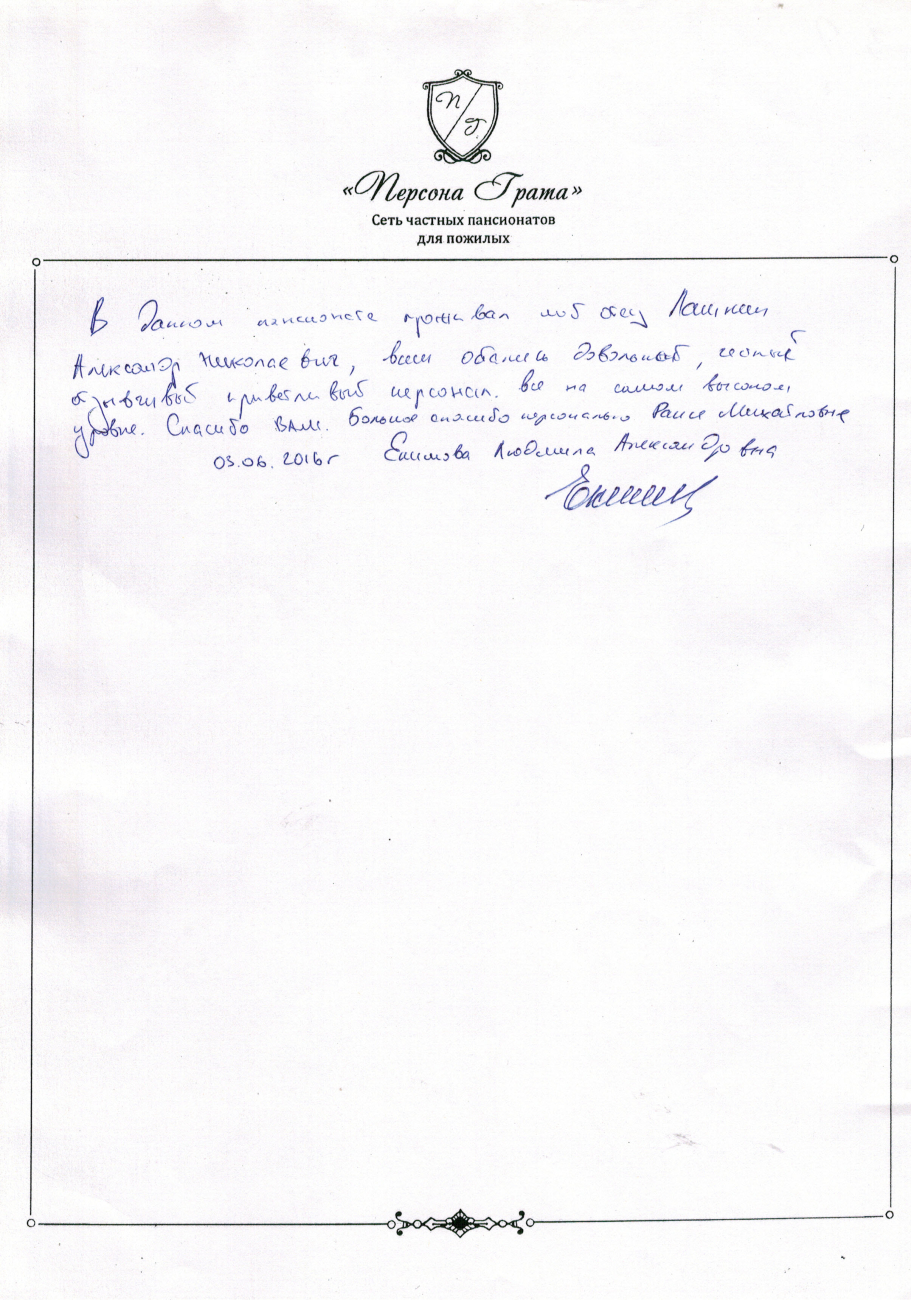 П Г
«Персона Грата»
Сеть частных пансионатов
для пожилых
В данном пансионате проживал мой отец Лашкин
Александр Николаевич, всем остались довольный, честный
отзывчивый приветливый персонал. все на самом высоком
уровне. Спасибо ВАМ. Большое спасибо персонально Раисе Михайловне
03.06.2016г Екимова Людмила Александровна